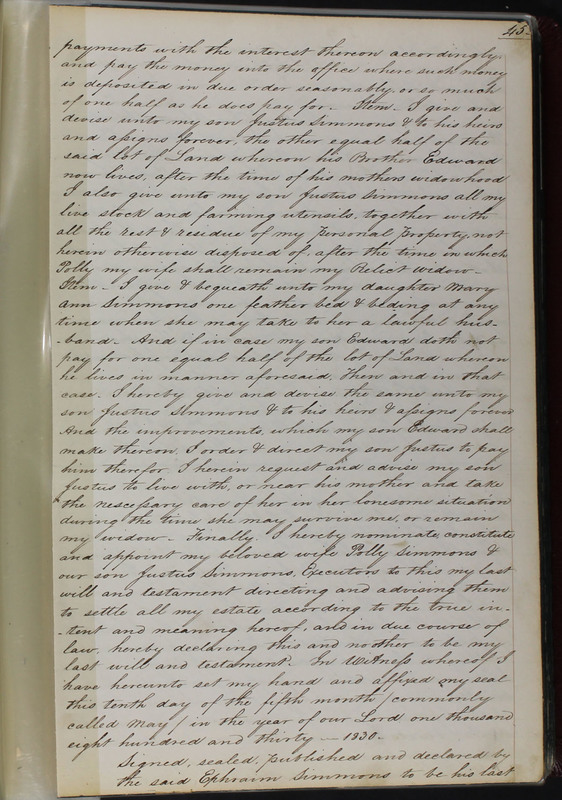 45.
payments with the interest thereon accordingly.
and pay the money into the office where such money
is deposited in due order seasonably, or so much
of one half as he does pay for. Item - I give and
devise unto my son Justus Simmons & to his heirs
and assigns forever, the other equal half of the
said lot of Land whereon his Brother Edward
now lives, after the time of his mothers widowhood
I also give unto my son Justus Simmons all my
live stock and farming utensils, together with
all the rest & residue of my Personal Property, not
herein otherwise disposed of, after the time in which
Polly my wife shall remain my Relict widow -
Item - I give & bequeath unto my daughter Mary
Ann Simmons one feather bed & beding at any
time when she may take to her a lawful hus-
-band - And if in case my son Edward doth not
pay for one equal half of the lot of Land whereon
he lives in manner aforesaid, Then and in that
case. I hereby give and devise the same unto my
son Justus Simmons & to his heirs & assigns forever
And the improvements, which my son Edward shall
make thereon, I order & direct my son Justus to pay
him therefor. I herein request and advise my son
Justus to live with, or near his mother and take
the nescessary care of her in her lonesome situation
during the time she may survive me, or remain
my widow - Finally. I hereby nominate, constitute
and appoint my beloved wife Polly Simmons &
our son Justus Simmons, Executors to this my last
will and testament directing and advising them
to settle all my estate according to the true in-
-tent and meaning hereof, and in due course of
law, hereby declaring this and no other to be my
last will and testament. In Witness whereof I
have hereunto set my hand and affixed my seal
this tenth day of the fifth month / commonly
called May / in the year of our Lord one thousand
eight hundred and thirty — 1830.
Signed, sealed, published and declared by
the said Ephraim Simmons to be his last